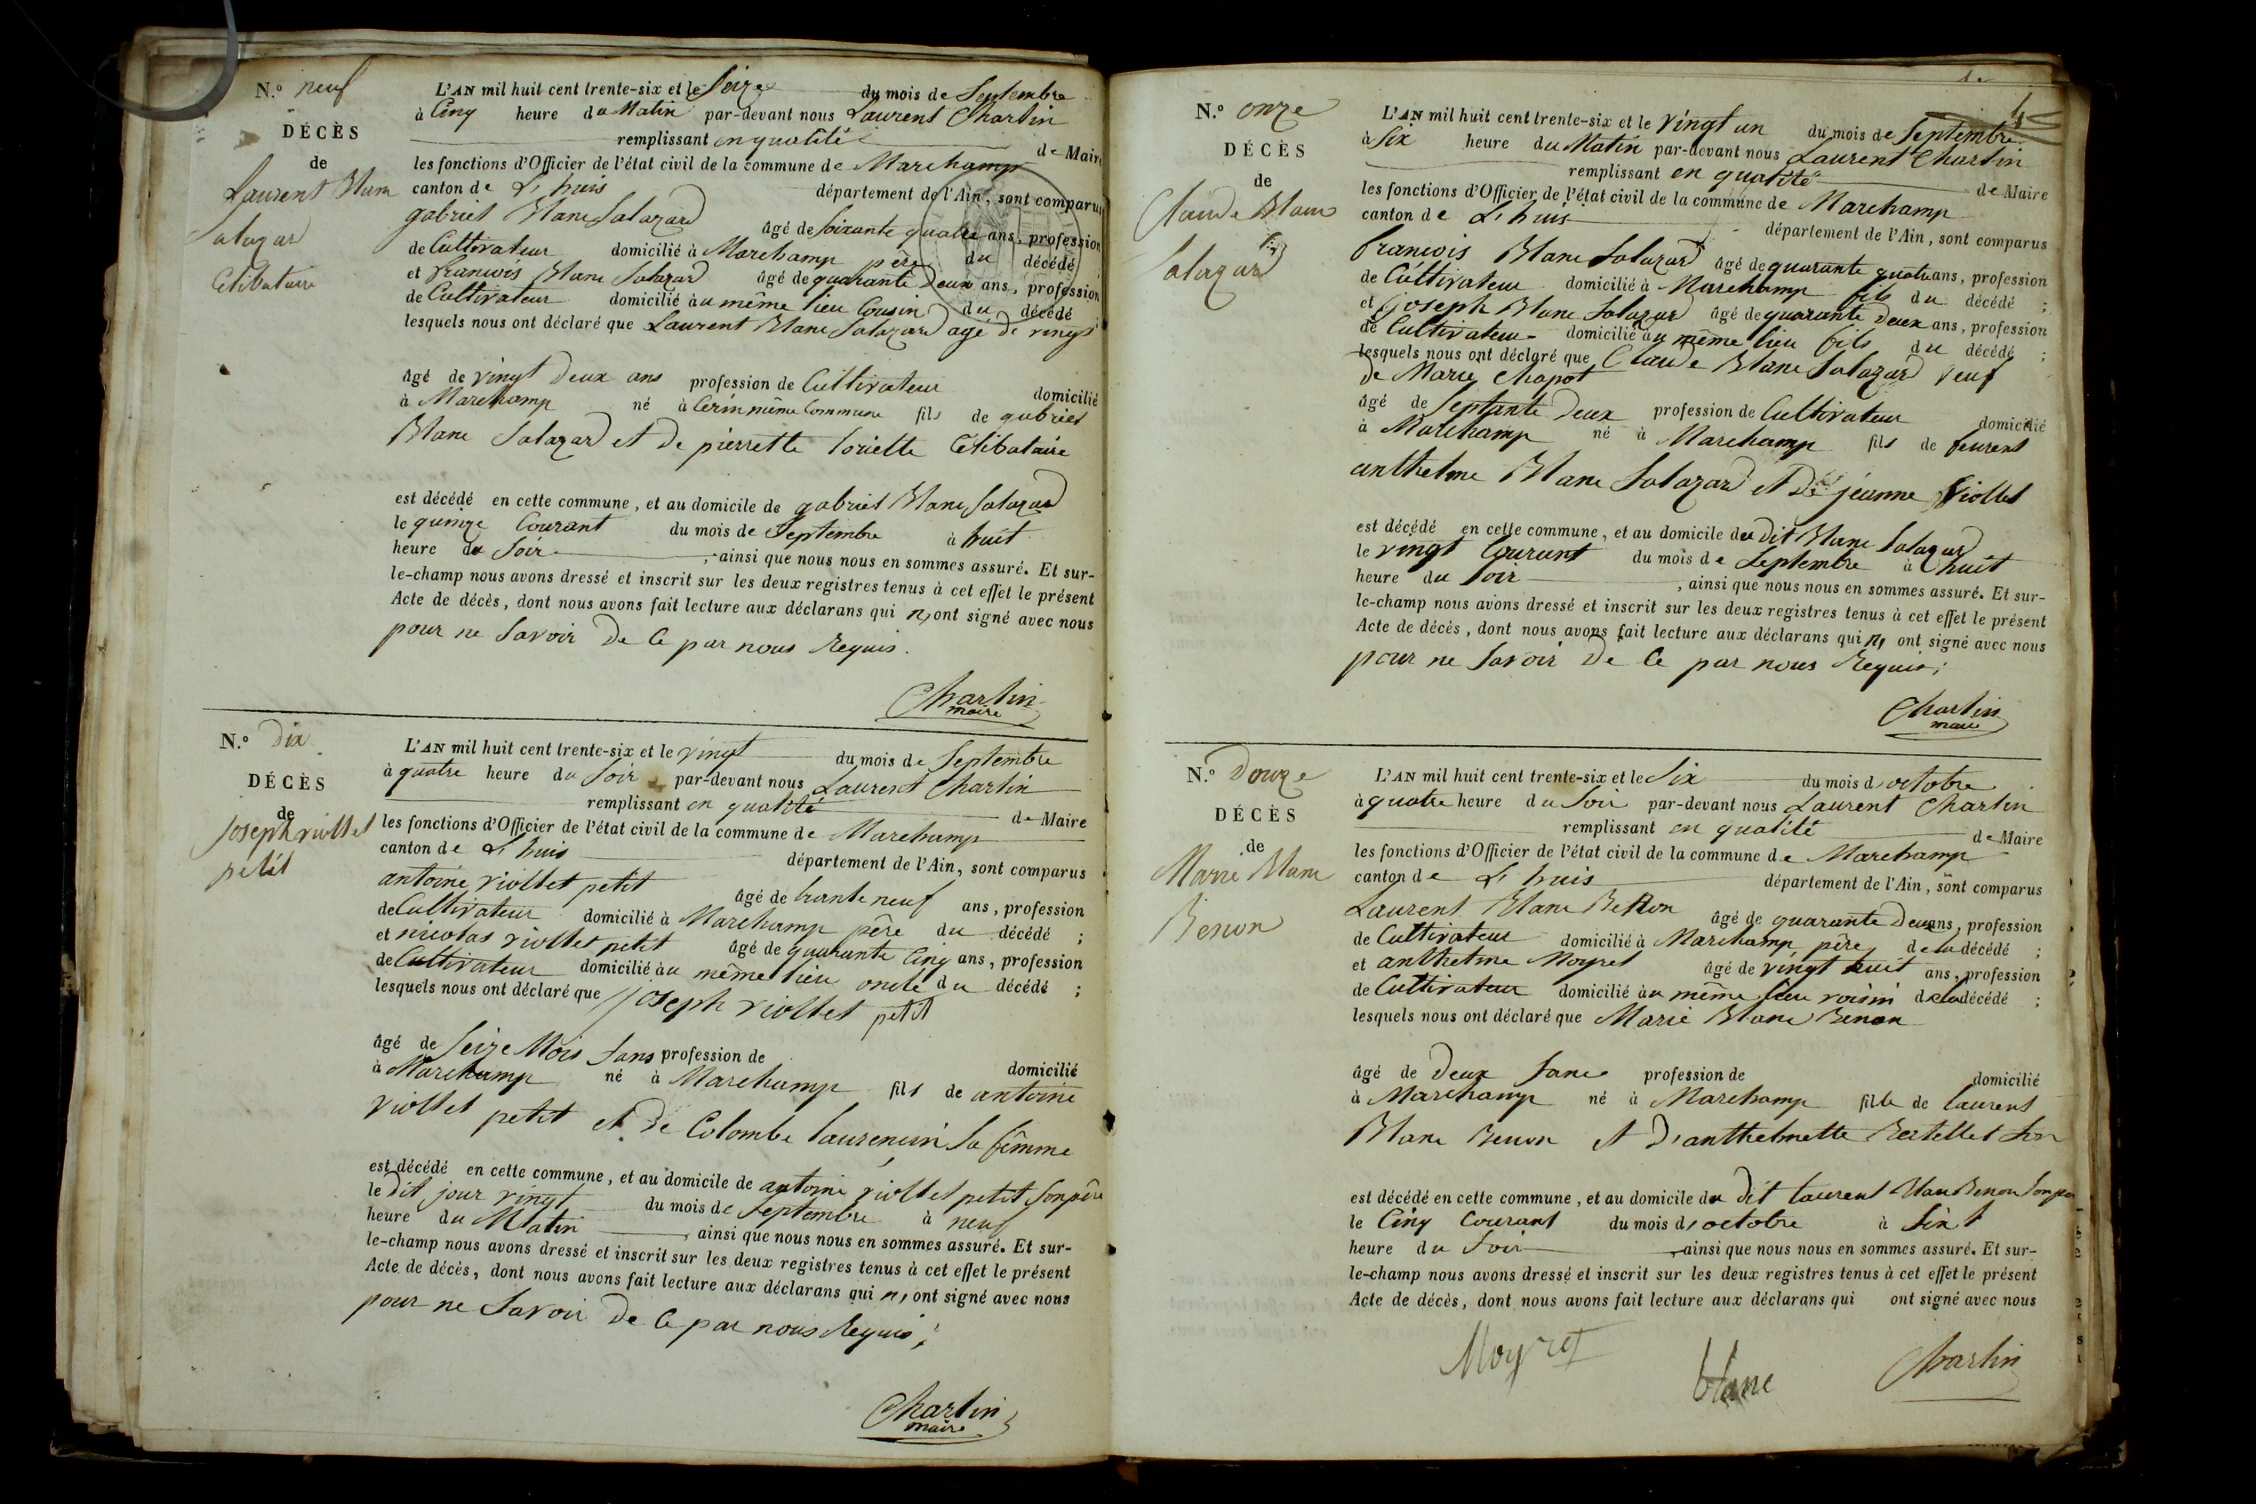 N.° neuf
DÉCÈS
de
Laurent Blanc
Salazar
Célibataire
L'AN mil huit cent trente-six et le Seize du mois de Septembre
à Cinq heure du Matin par-devant nous Laurent Charlin
remplissant en qualité de Maire
les fonctions d'Officier de l'état civil de la commune de Marchamp
canton de L'huis département de l'Ain, sont comparus
gabriel Blanc Salazard âgé de Soixante quatre ans, profession
de Cultivateur domicilié à Marchamp père du décédé
et francois Blanc Salazard âgé de quarante Deux ans, profession
de Cultivateur domicilié au même lieu Cousin du décédé
lesquels nous ont déclaré que Laurent Blanc Salazard agé de vingt
âgé de vingt Deux ans profession de Cultivateur domicilié
à Marchamp né à Cerin même Commune fils de gabriel
Blanc Salazard et De pierrette Célibataire
est décédé en cette commune, et au domicile de gabriel Blanc Salazard
le quinze Courant du mois de Septembre à huit
heure du Soir, ainsi que nous nous en sommes assuré. Et sur-
le-champ nous avons dressé et inscrit sur les deux registres tenus à cet effet le présent
Acte de décès, dont nous avons fait lecture aux déclarans qui n'ont signé avec nous
pour ne Savoir De Ce par nous Requis.
Charlin
maire
N.° Dix
DÉCÈS
de
joseph viollet
petit
L'AN mil huit cent trente-six et le vingt du mois de Septembre
à quatre heure du Soir par-devant nous Laurent Charlin
remplissant en qualité de Maire
les fonctions d'Officier de l'état civil de la commune de Marchamp
canton de L'huis département de l'Ain, sont comparus
antoine viollet petit âgé de trante neuf ans, profession
de Cultivateur domicilié à Marchamp père du décédé ;
et nicolas viollet petit âgé de quarante Cinq ans, profession
de Cultivateur domicilié au même lieu oncle du décédé ;
lesquels nous ont déclaré que joseph viollet petit
âgé de Seize Mois Sans profession de domicilié
à Marchamp né à Marchamp fils de antoine
viollet petit et De Colombe laurencin Sa fêmme
est décédé en cette commune, et au domicile de antoine viollet petit Son père
le Dit jour vingt du mois de Septembre à neuf
heure du Matin, ainsi que nous nous en sommes assuré. Et sur-
le-champ nous avons dressé et inscrit sur les deux registres tenus à cet effet le présent
Acte de décès, dont nous avons fait lecture aux déclarans qui n'ont signé avec nous
pour ne Savoir De Ce par nous Requis ;
Charlin
maire
N.° onze
DÉCÈS
de
Claude Blanc
Salazard
L'AN mil huit cent trente-six et le vingt un du mois de Septembre
à Six heure du Matin par-devant nous Laurent Charlin
remplissant en qualité de Maire
les fonctions d'Officier de l'état civil de la commune de Marchamp
canton de L'huis département de l'Ain, sont comparus
francois Blanc Salazard âgé de quarante quatre ans, profession
de Cultivateur domicilié à Marchamp fils du décédé ;
et joseph Blanc Salazard âgé de quarante Deux ans, profession
de Cultivateur domicilié au même lieu fils du décédé ;
lesquels nous ont déclaré que Claude Blanc Salazard veuf
De Marie Chapot
âgé de Septante Deux profession de Cultivateur domicilié
à Marchamp né à Marchamp fils de feurent
anthelme Blanc Salazard et De jeanne Viollet
est décédé en cette commune, et au domicile du Dit Blanc Salazard
le vingt Courant du mois de Septembre à huit
heure du Soir, ainsi que nous nous en sommes assuré. Et sur-
le-champ nous avons dressé et inscrit sur les deux registres tenus à cet effet le présent
Acte de décès, dont nous avons fait lecture aux déclarans qui n'ont signé avec nous
pour ne Savoir De Ce par nous Requis ;
Charlin
maire
N.° Douze
DÉCÈS
de
Marie Blanc
Benon
L'AN mil huit cent trente-six et le Six du mois d'octobre
à quatre heure du Soir par-devant nous Laurent Charlin
remplissant en qualité de Maire
les fonctions d'Officier de l'état civil de la commune de Marchamp
canton de L'huis département de l'Ain, sont comparus
Laurent Blanc Benon âgé de quarante Deux ans, profession
de Cultivateur domicilié à Marchamp père de la décédé ;
et anthelme Moyret âgé de vingt huit ans, profession
de Cultivateur domicilié au même lieu voisin de la décédé ;
lesquels nous ont déclaré que Marie Blanc Benon
âgé de Deux Sans profession de domicilié
à Marchamp né à Marchamp fille de laurent
Blanc Benon et D'anthelmette Bertellet
est décédé en cette commune, et au domicile du Dit laurent Blanc Benon Son père
le Cinq Courant du mois d'octobre à Sixt
heure du Soir, ainsi que nous nous en sommes assuré. Et sur-
le-champ nous avons dressé et inscrit sur les deux registres tenus à cet effet le présent
Acte de décès, dont nous avons fait lecture aux déclarans qui ont signé avec nous
Moyret blanc Charlin